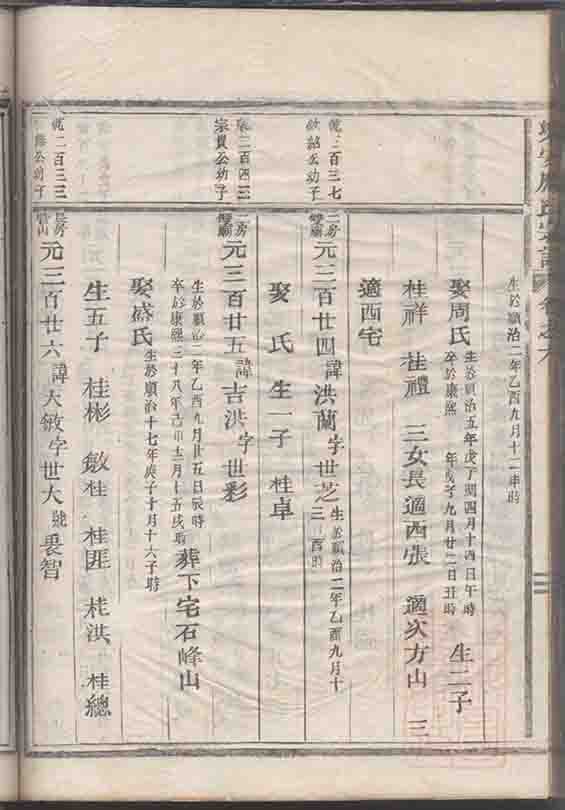 生於順治二年乙酉九月十二申時
娶周氏 生於順治五年戊子閏四月十四日午時 卒於康熙 年戊子九月廿二日丑時 生二子
桂祥 桂禮 三女長適西張 適次方山 三
適西宅
乾三百三七
公幼子
二房
元三百廿四諱洪蘭字世芝 生於順治二年乙酉九月十三 酉時
娶 氏 生一子 桂卓
二百四三
宗貫公幼子
二房
元三百廿五諱吉洪字世彩
生於順治二年乙酉九月廿五日辰時
卒於康熙三十八年己卯十二月十五戌時 葬下宅石峰山
娶盛氏 生於順治十七年庚子十月十六子時
生五子 桂彬 桂 桂匪 桂洪 桂總
乾二百三三
公幼子
長房
元三百廿六諱大敏字世大號 智